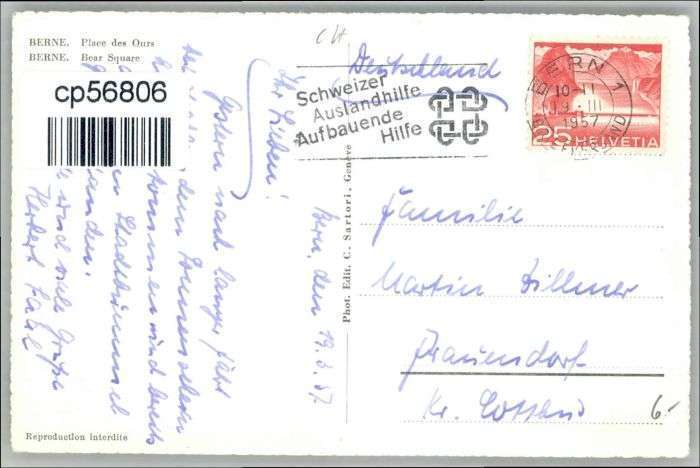 BERNE. Place des Ours
BERNE. Bear Square
cp56806
CH
Deutschland
Schweizer
Auslandhilfe
Aufbauende
Hilfe
BERN 1
10-11
19. III
1957
25 HELVETIA
Bern, den 19.3.57
Ihr Lieben!
Gestern nach langer Fahrt
dem Donner
kommen sind bereits
Stadtbummel
standen.
viele Grüße
Herbert
Phot. Edit. C. Sartori, Genève
Familie
Martin Billmer
Frauendorf
Kr. Cottbus
6.-
Reproduction interdite